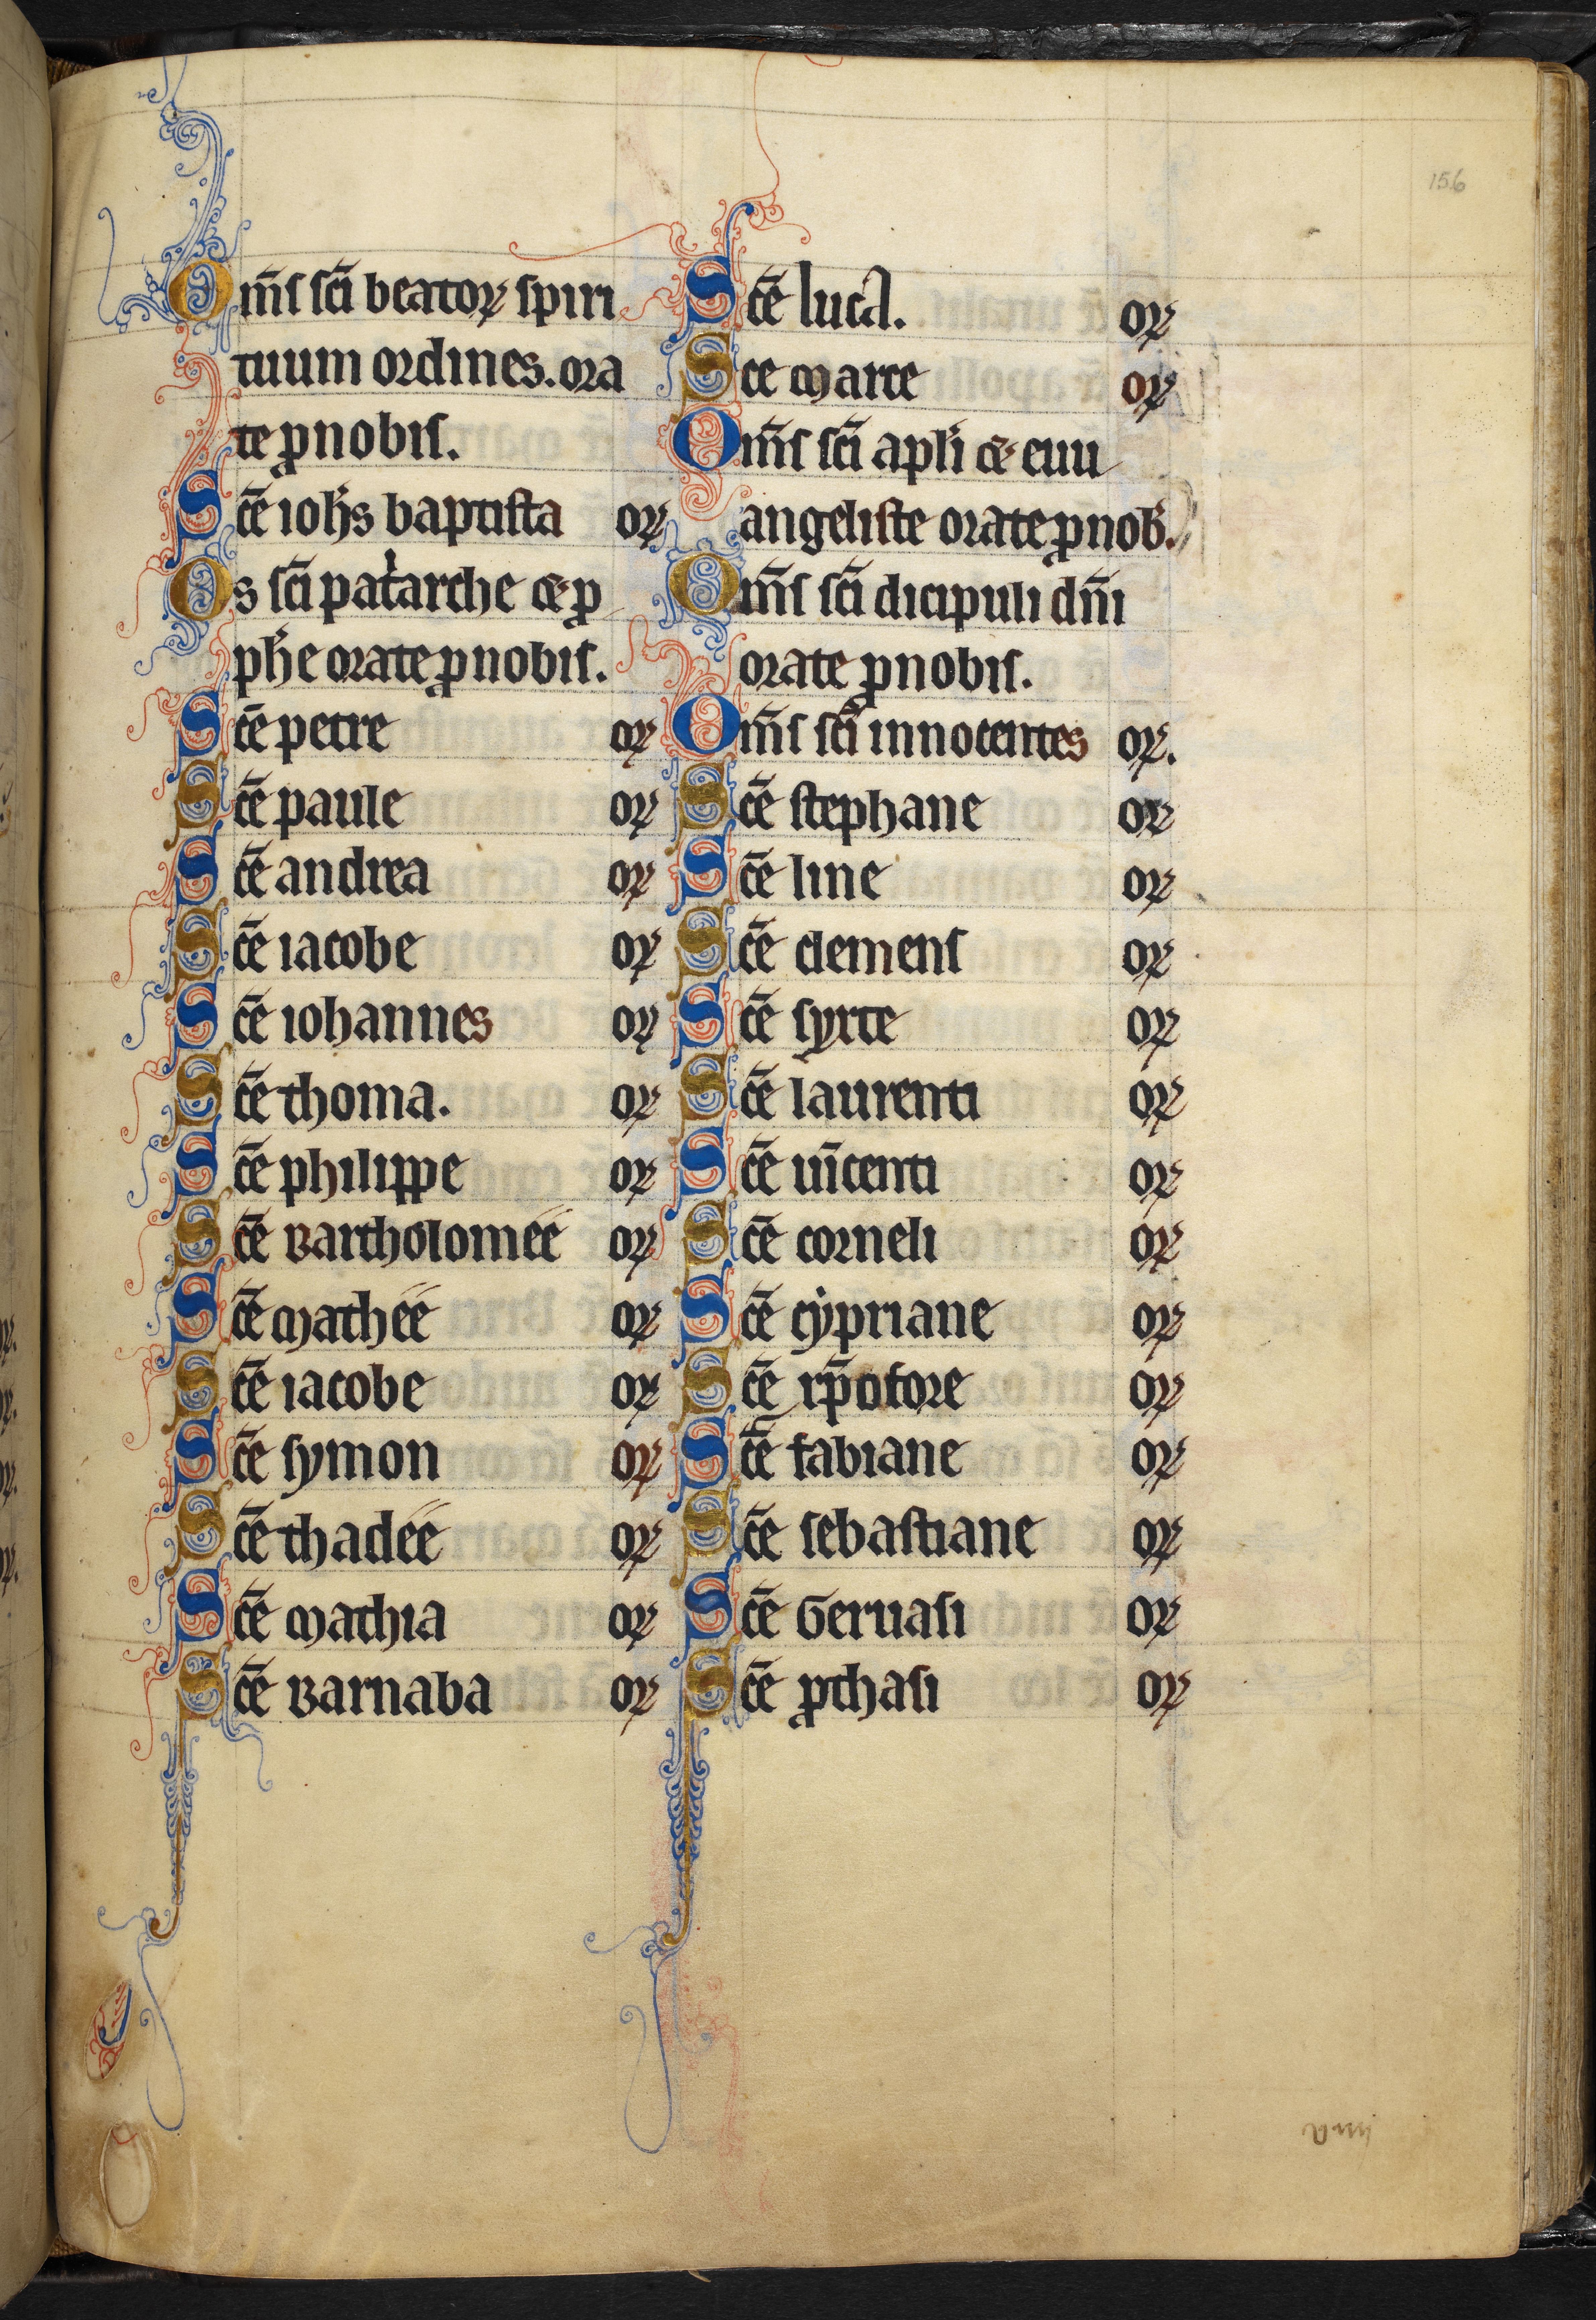 156
Om̄s sc̄i beatoꝝ spiri
tuum ordines. ora
te ꝓ nobis.
Sc̄e ioh̄s baptista oꝝ
Os sc̄i pat͛arche ⁊ ꝓ
ph̄e orate ꝓ nobis.
Sc̄e petre oꝝ
Sc̄e paule oꝝ
Sc̄e andrea oꝝ
Sc̄e iacobe oꝝ
Sc̄e iohannes oꝝ
Sc̄e thoma. oꝝ
Sc̄e philippe oꝝ
Sc̄e Bartholomée oꝝ
Sc̄e Mathée oꝝ
Sc̄e iacobe oꝝ
Sc̄e symon oꝝ
Sc̄e thadée oꝝ
Sc̄e Mathia oꝝ
Sc̄e Barnaba oꝝ
Sc̄e luca. oꝝ
Sce Marce oꝝ
Om̄s sc̄i apl̄i ⁊ euu
angeliste orate ꝓ nob̄.
Om̄s sc̄i dicipuli dn̄i
orate ꝓ nobis.
Om̄s sc̄i innocentes oꝝ.
Sc̄e stephane oꝝ
Sc̄e line oꝝ
Sc̄e clemens oꝝ
Sc̄e syxte oꝝ
Sc̄e laurenti oꝝ
Sc̄e uīcenti oꝝ
Sc̄e corneli oꝝ
Sc̄e cypriane oꝝ
Sc̄e xp̄ofore oꝝ
Sc̄e fabiane oꝝ
Sc̄e sebastiane oꝝ
Sc̄e Geruasi oꝝ
Sc̄e ꝓthasi oꝝ